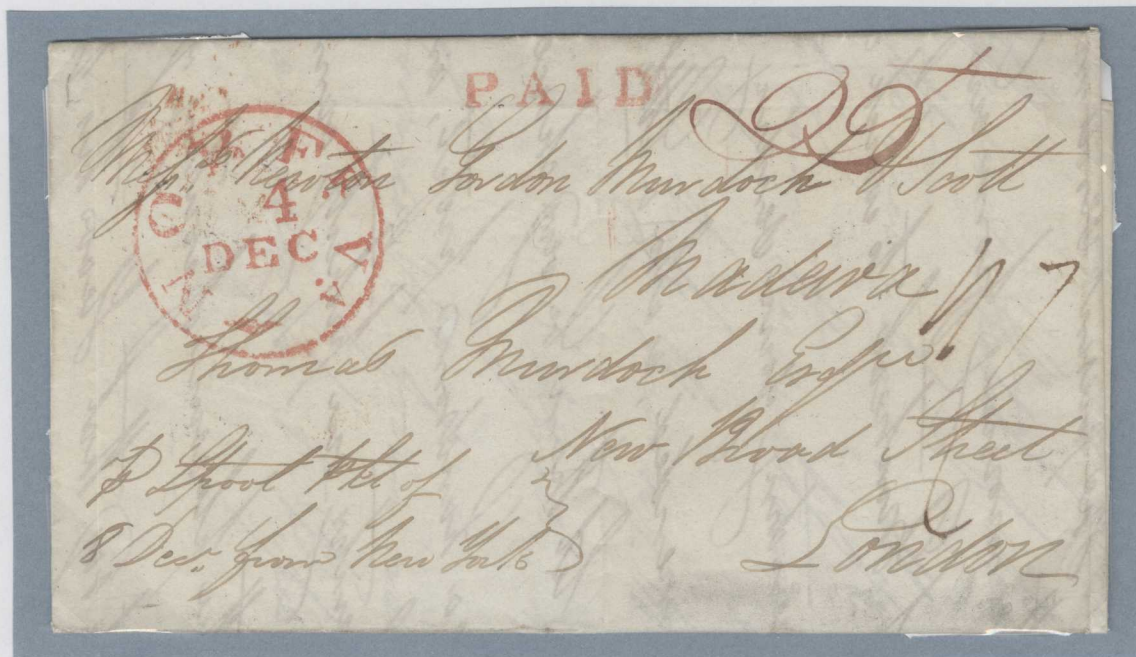 PAID
25
Mess.rs Newton Gordon Murdoch & Scott
Madeira
4
DEC
VA.
1/7
Thomas Murdoch Esqre.
New Broad Street
London
P Lpool Pkt of
8 Decr. from New York